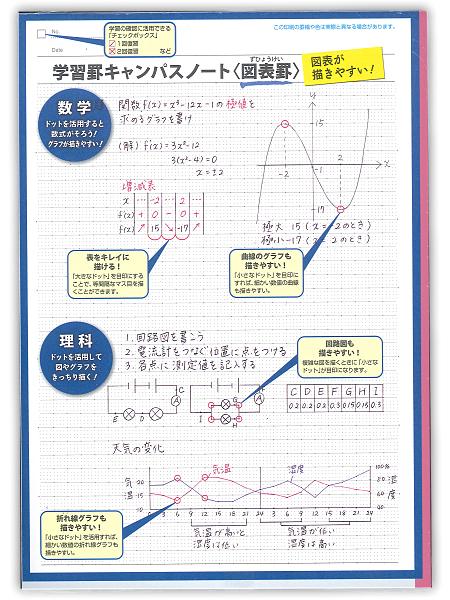 No.
Date
学習の確認に活用できる
「チェックボックス」
1回復習
2回復習 など
この印刷の罫幅や色は実際と異なる場合があります。
学習罫キャンパスノート〈図表罫〉
ずひょうけい
図表が
描きやすい!
数学
ドットを活用すると
数式がそろう!
グラフが描きやすい!
関数f(x)=x³-12x-1の極値を
求めるグラフを書け
(解) f'(x)=3x²-12
3(x²-4)=0
x=±2
増減表
x … -2 … 2 …
f'(x) + 0 - 0 +
f(x) ↗ 15 ↘ -17 ↗
y
15
-2
2
x
-17
極大 15 (x=-2のとき)
極小-17 (x=2のとき)
表をキレイに
描ける!
「大きなドット」を目印にする
ことで、等間隔なマス目を描
くことができます。
曲線のグラフも
描きやすい!
「小さなドット」を目印に
すれば、細かい数値の曲線
も描きやすい。
理科
ドットを活用して
図やグラフを
きっちり描く!
1.回路図を書こう
2.電流計をつなぐ位置に点をつける
3.各点に測定値を記入する
回路図も
描きやすい!
複雑な図を描くときに「小さな
ドット」が目印になります。
C
A
E D
C
G
F
I
H
A
C D E F G H I
0.2 0.2 0.2 0.3 0.15 0.15 0.3
天気の変化
気温
湿度
気温
20
15
10
100%
80
60
30
湿度
3 6 9 12 15 18 21 24 3 6 9 12 15 18 21 24
気温が高いと
湿度は低い
気温が低い
湿度は高い
折れ線グラフも
描きやすい!
「小さなドット」を活用すれば、
細かい数値の折れ線グラフも
描きやすい。